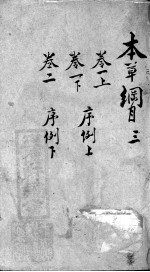 本草綱目 三
卷一上 序例上
卷一下
卷二 序例下